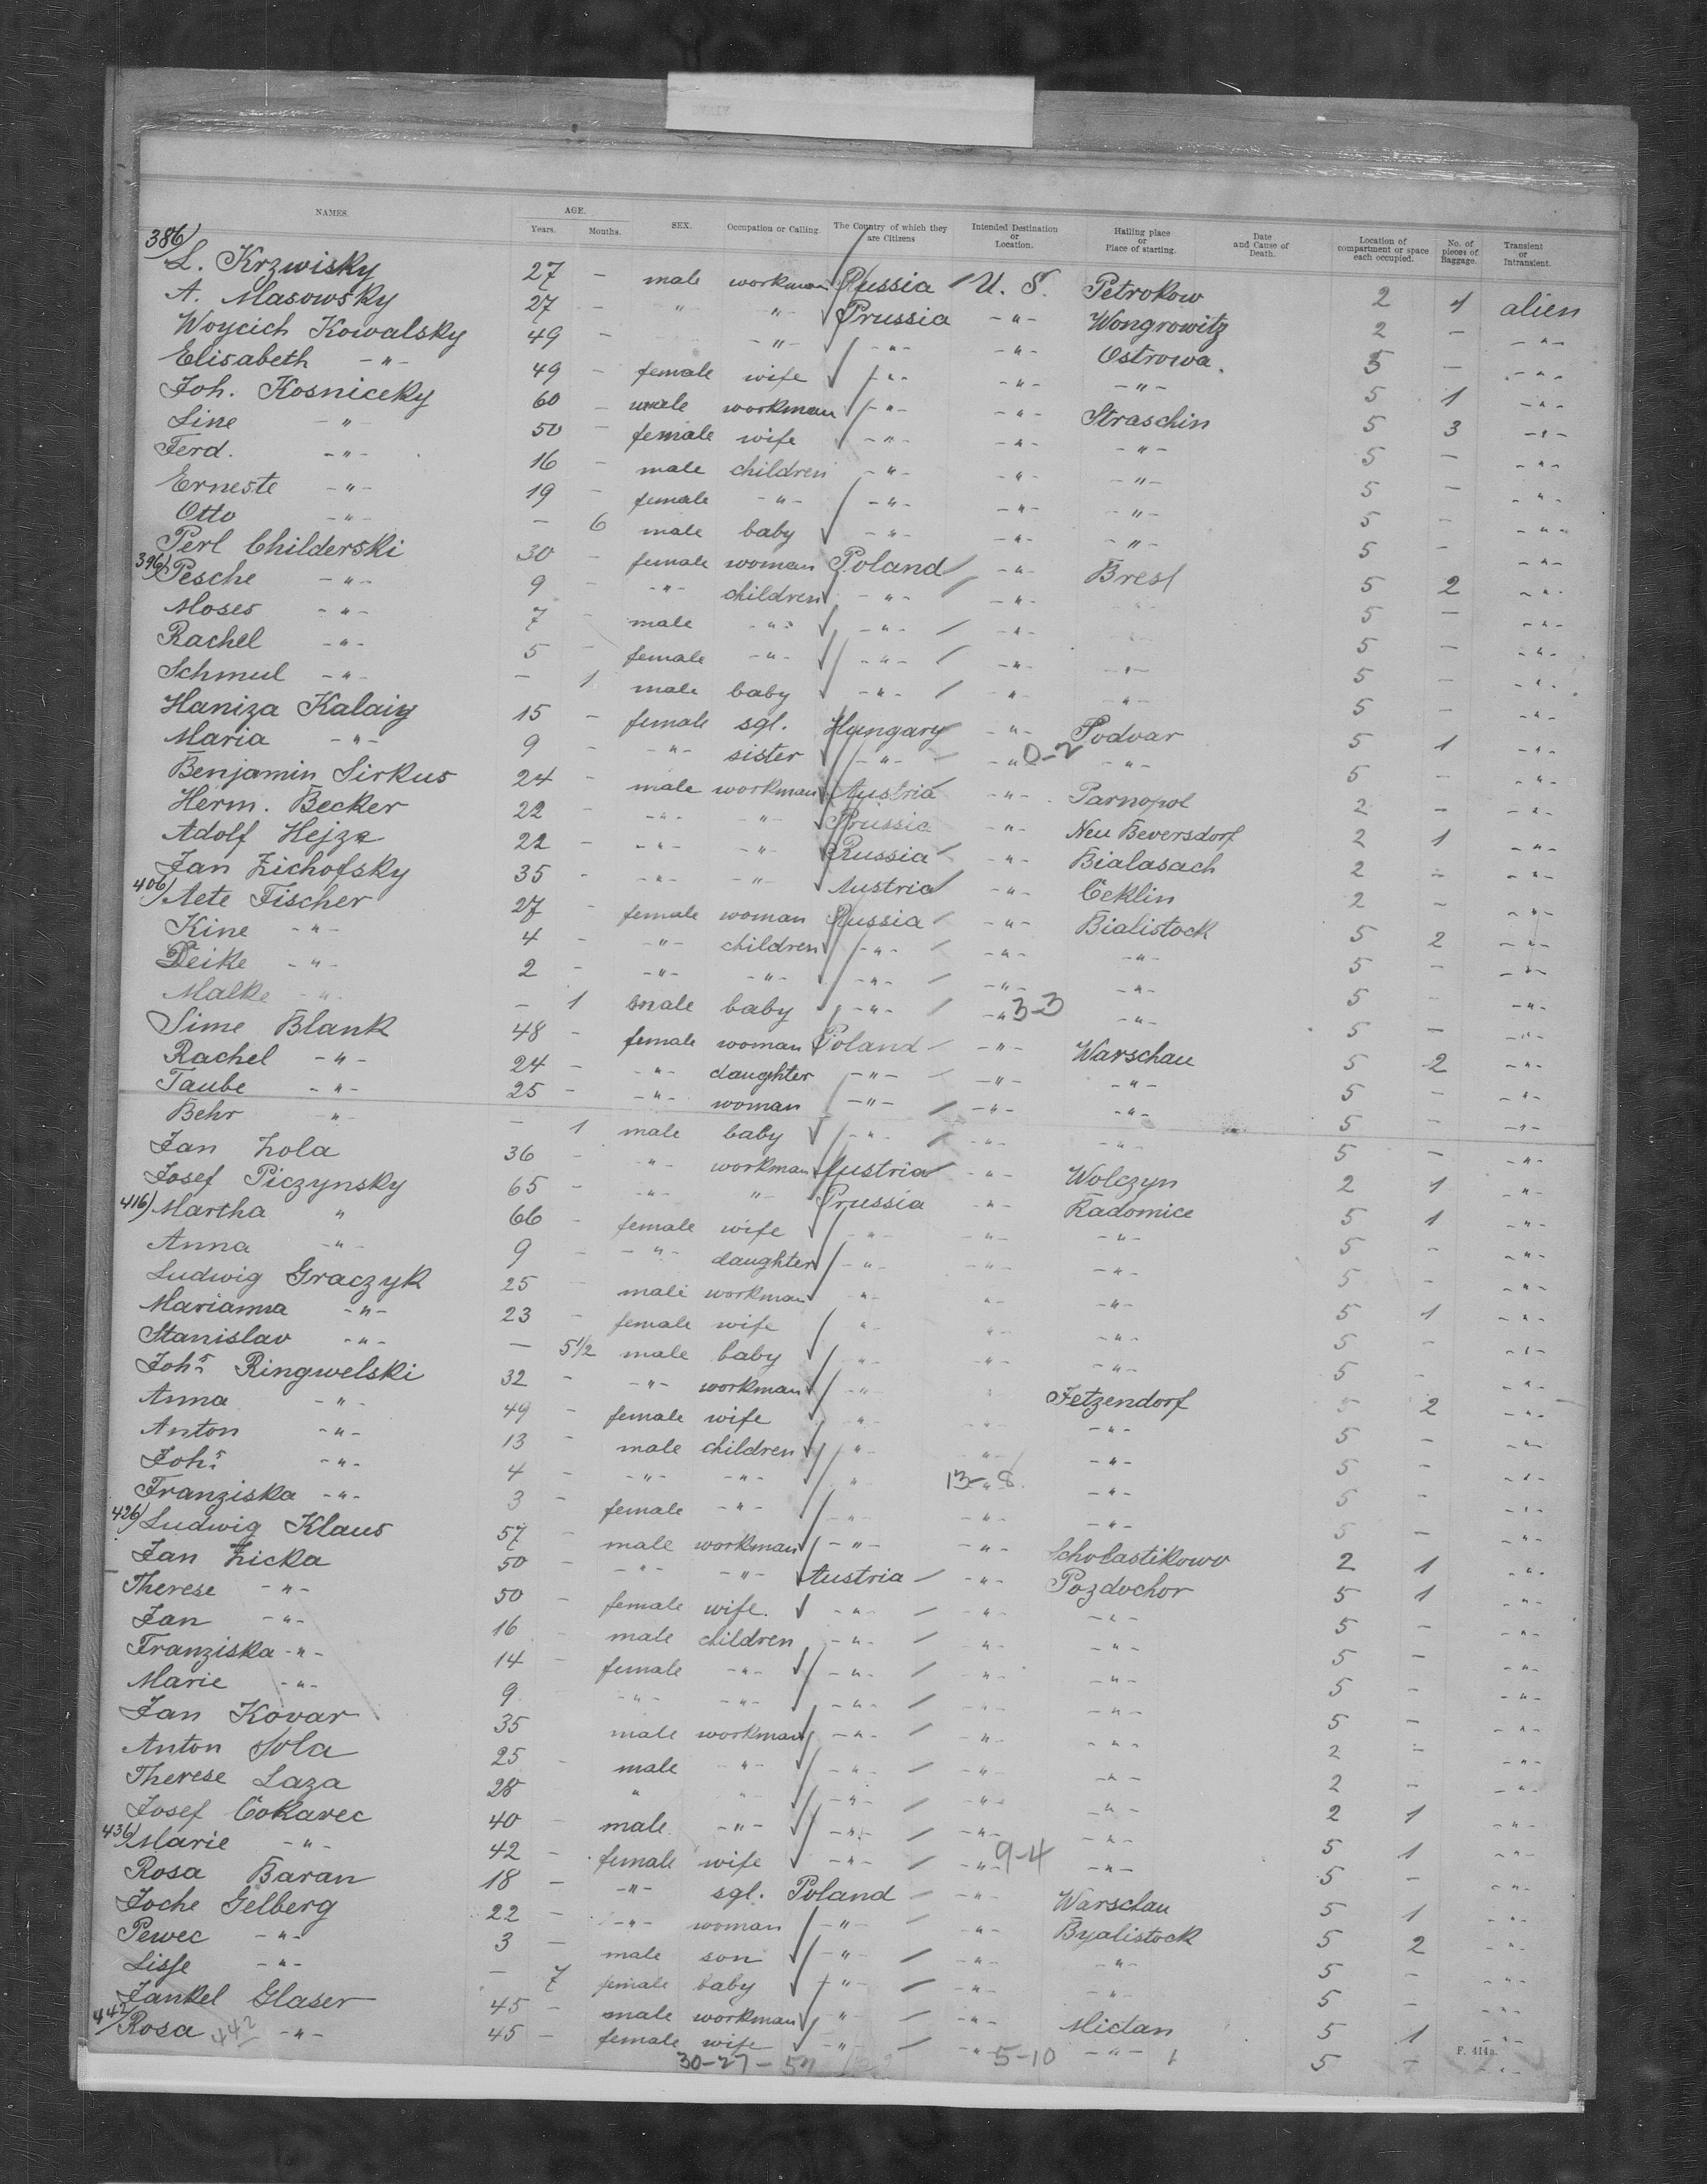 NAMES. AGE. Years. Months. SEX. Occupation or Calling. The Country of which they are Citizens Intended Destination or Location. Hailing place or Place of starting. Date and Cause of Death. Location of compartment or space each occupied. No. of pieces of Baggage. Transient or Intransient.
386) L. Krzwisky 27 - male workman Russia U. S. Petrokow 2 1 alien
A. Masowsky 27 - " " Prussia -"- Wongrowitz 2 - -"-
Woycich Kowalsky 49 - -"- -"- -"- Ostrowa. 5 - -"-
Elisabeth -"- 49 - female wife -"- -"- -"- 5 1 -"-
Joh. Kosniceky 60 - male workman -"- -"- Straschin 5 3 -"-
Line -"- 50 - female wife -"- -"- -"- 5 - -"-
Ferd. -"- 16 - male children -"- -"- -"- 5 - -"-
Erneste -"- 19 - female -"- -"- -"- -"- 5 - -"-
Otto -"- - 6 male baby -"- -"- -"- 5 - -"-
Perl Childerski 30 - female woman Poland -"- Brest 5 2 -"-
396) Pesche -"- 9 - -"- children -"- -"- 5 - -"-
Moses -"- 7 - male -"- -"- -"- 5 - -"-
Rachel -"- 5 - female -"- -"- -"- -"- 5 - -"-
Schmul -"- - 1 male baby -"- -"- -"- 5 - -"-
Haniza Kalaiy 15 - female sgl. Hungary -"- Podvar 5 1 -"-
Maria -"- 9 - -"- sister -"- -"- 0-2 -"- 5 - -"-
Benjamin Sirkus 24 - male workman Austria -"- Parnopol 2 - -"-
Herm. Becker 22 - -"- -"- Prussia -"- Neu Beversdorf 2 1 -"-
Adolf Hejza 22 - -"- -"- Russia -"- Bialasach 2 - -"-
Jan Zichofsky 35 - -"- -"- Austria -"- Ceklin 2 - -"-
406) Aete Fischer 27 - female woman Russia -"- Bialistock 5 2 -"-
Kine -"- 4 - -"- children -"- -"- -"- 5 - -"-
Deike -"- 2 - -"- -"- -"- -"- -"- 5 - -"-
Malke -"- - 1 male baby -"- -"- 3-3 -"- 5 - -"-
Sime Blank 48 - female woman Poland -"- Warschau 5 2 -"-
Rachel -"- 24 - -"- daughter -"- -"- -"- 5 - -"-
Taube -"- 25 - -"- woman -"- -"- -"- 5 - -"-
Behr -"- - 1 male baby -"- -"- -"- 5 - -"-
Jan Zola 36 - -"- workman Austria -"- Wolczyn 2 1 -"-
Josef Piczynsky 65 - -"- " Prussia -"- Radomice 5 1 -"-
416) Martha " 66 - female wife -"- -"- -"- 5 - -"-
Anna -"- 9 - -"- daughter -"- -"- -"- 5 - -"-
Ludwig Graczyk 25 - male workman -"- " -"- 5 1 -"-
Marianna -"- 23 - female wife " " -"- 5 - -"-
Stanislav -"- - 5 1/2 male baby -"- -"- -"- 5 - -"-
Johs. Ringwelski 32 - -"- workman -"- " Fetzendorf 5 2 -"-
Anna -"- 49 - female wife " " -"- 5 - -"-
Anton -"- 13 - male children " " -"- 5 - -"-
Johs. -"- 4 - -"- -"- " 13-8 -"- 5 - -"-
Franziska -"- 3 - female -"- -"- -"- -"- 5 - -"-
426) Ludwig Klaus 57 - male workman -"- -"- Scholastikowo 2 1 -"-
Jan Zicka 50 - -"- -"- Austria -"- Pozdvchor 5 1 -"-
Therese -"- 50 - female wife. -"- -"- -"- 5 - -"-
Jan -"- 16 - male children -"- " -"- 5 - -"-
Franziska -"- 14 - female -"- -"- -"- -"- 5 - -"-
Marie -"- 9 -"- -"- -"- -"- -"- 5 - -"-
Jan Kovar 35 male workman -"- -"- -"- 2 - -"-
Anton Sola 25 - male -"- -"- -"- -"- 2 - -"-
Therese Laza 28 " " -"- -"- -"- 2 1 -"-
Josef Cokavec 40 male -"- -"- -"- -"- 5 1 -"-
436) Marie -"- 42 - female wife -"- -"- 9-4 -"- 5 - -"-
Rosa Baran 18 - -"- sgl. Poland -"- Warschau 5 1 -"-
Joche Gelberg 22 - -"- woman -"- -"- Byalistock 5 2 -"-
Pewec -"- 3 - male son -"- -"- -"- 5 - -"-
Lisse -"- - 7 female baby -"- -"- -"- 5 - -"-
Jankel Glaser 45 - male workman -"- -"- Mictan 5 1 -"-
442) Rosa 442 -"- 45 - female wife -"- -"- 5-10 -"- 5 - -"-
30-27-57
F. 414a.